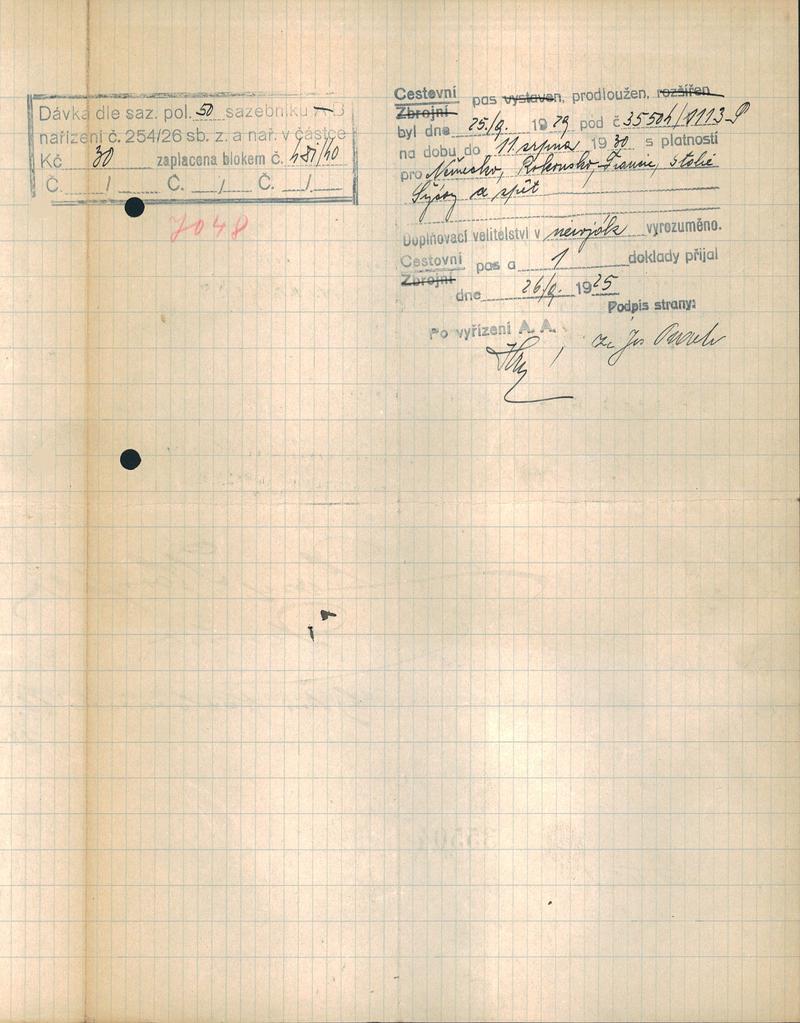 Dávka dle saz. pol. 50 sazebníku
nařízení č. 254/26 sb. z. a nař. v částce
Kč 30 zaplacena blokem č.
Č. / Č. / Č. /
7048
Cestovní
Zbrojní
pas vystaven, prodloužen, rozšířen
byl dne 25./9. 1929 pod č. 35504/1113-P
na dobu do 11. srpna 1930 s platností
pro Německo, Rakousko, Francie, Itálie
Švýcary a zpět
Doplňovací velitelství v nevoják vyrozuměno.
Cestovní
Zbrojní
pas a 1 doklady přijal
dne 26/9. 19
Podpis strany:
Po vyřízení A. A.